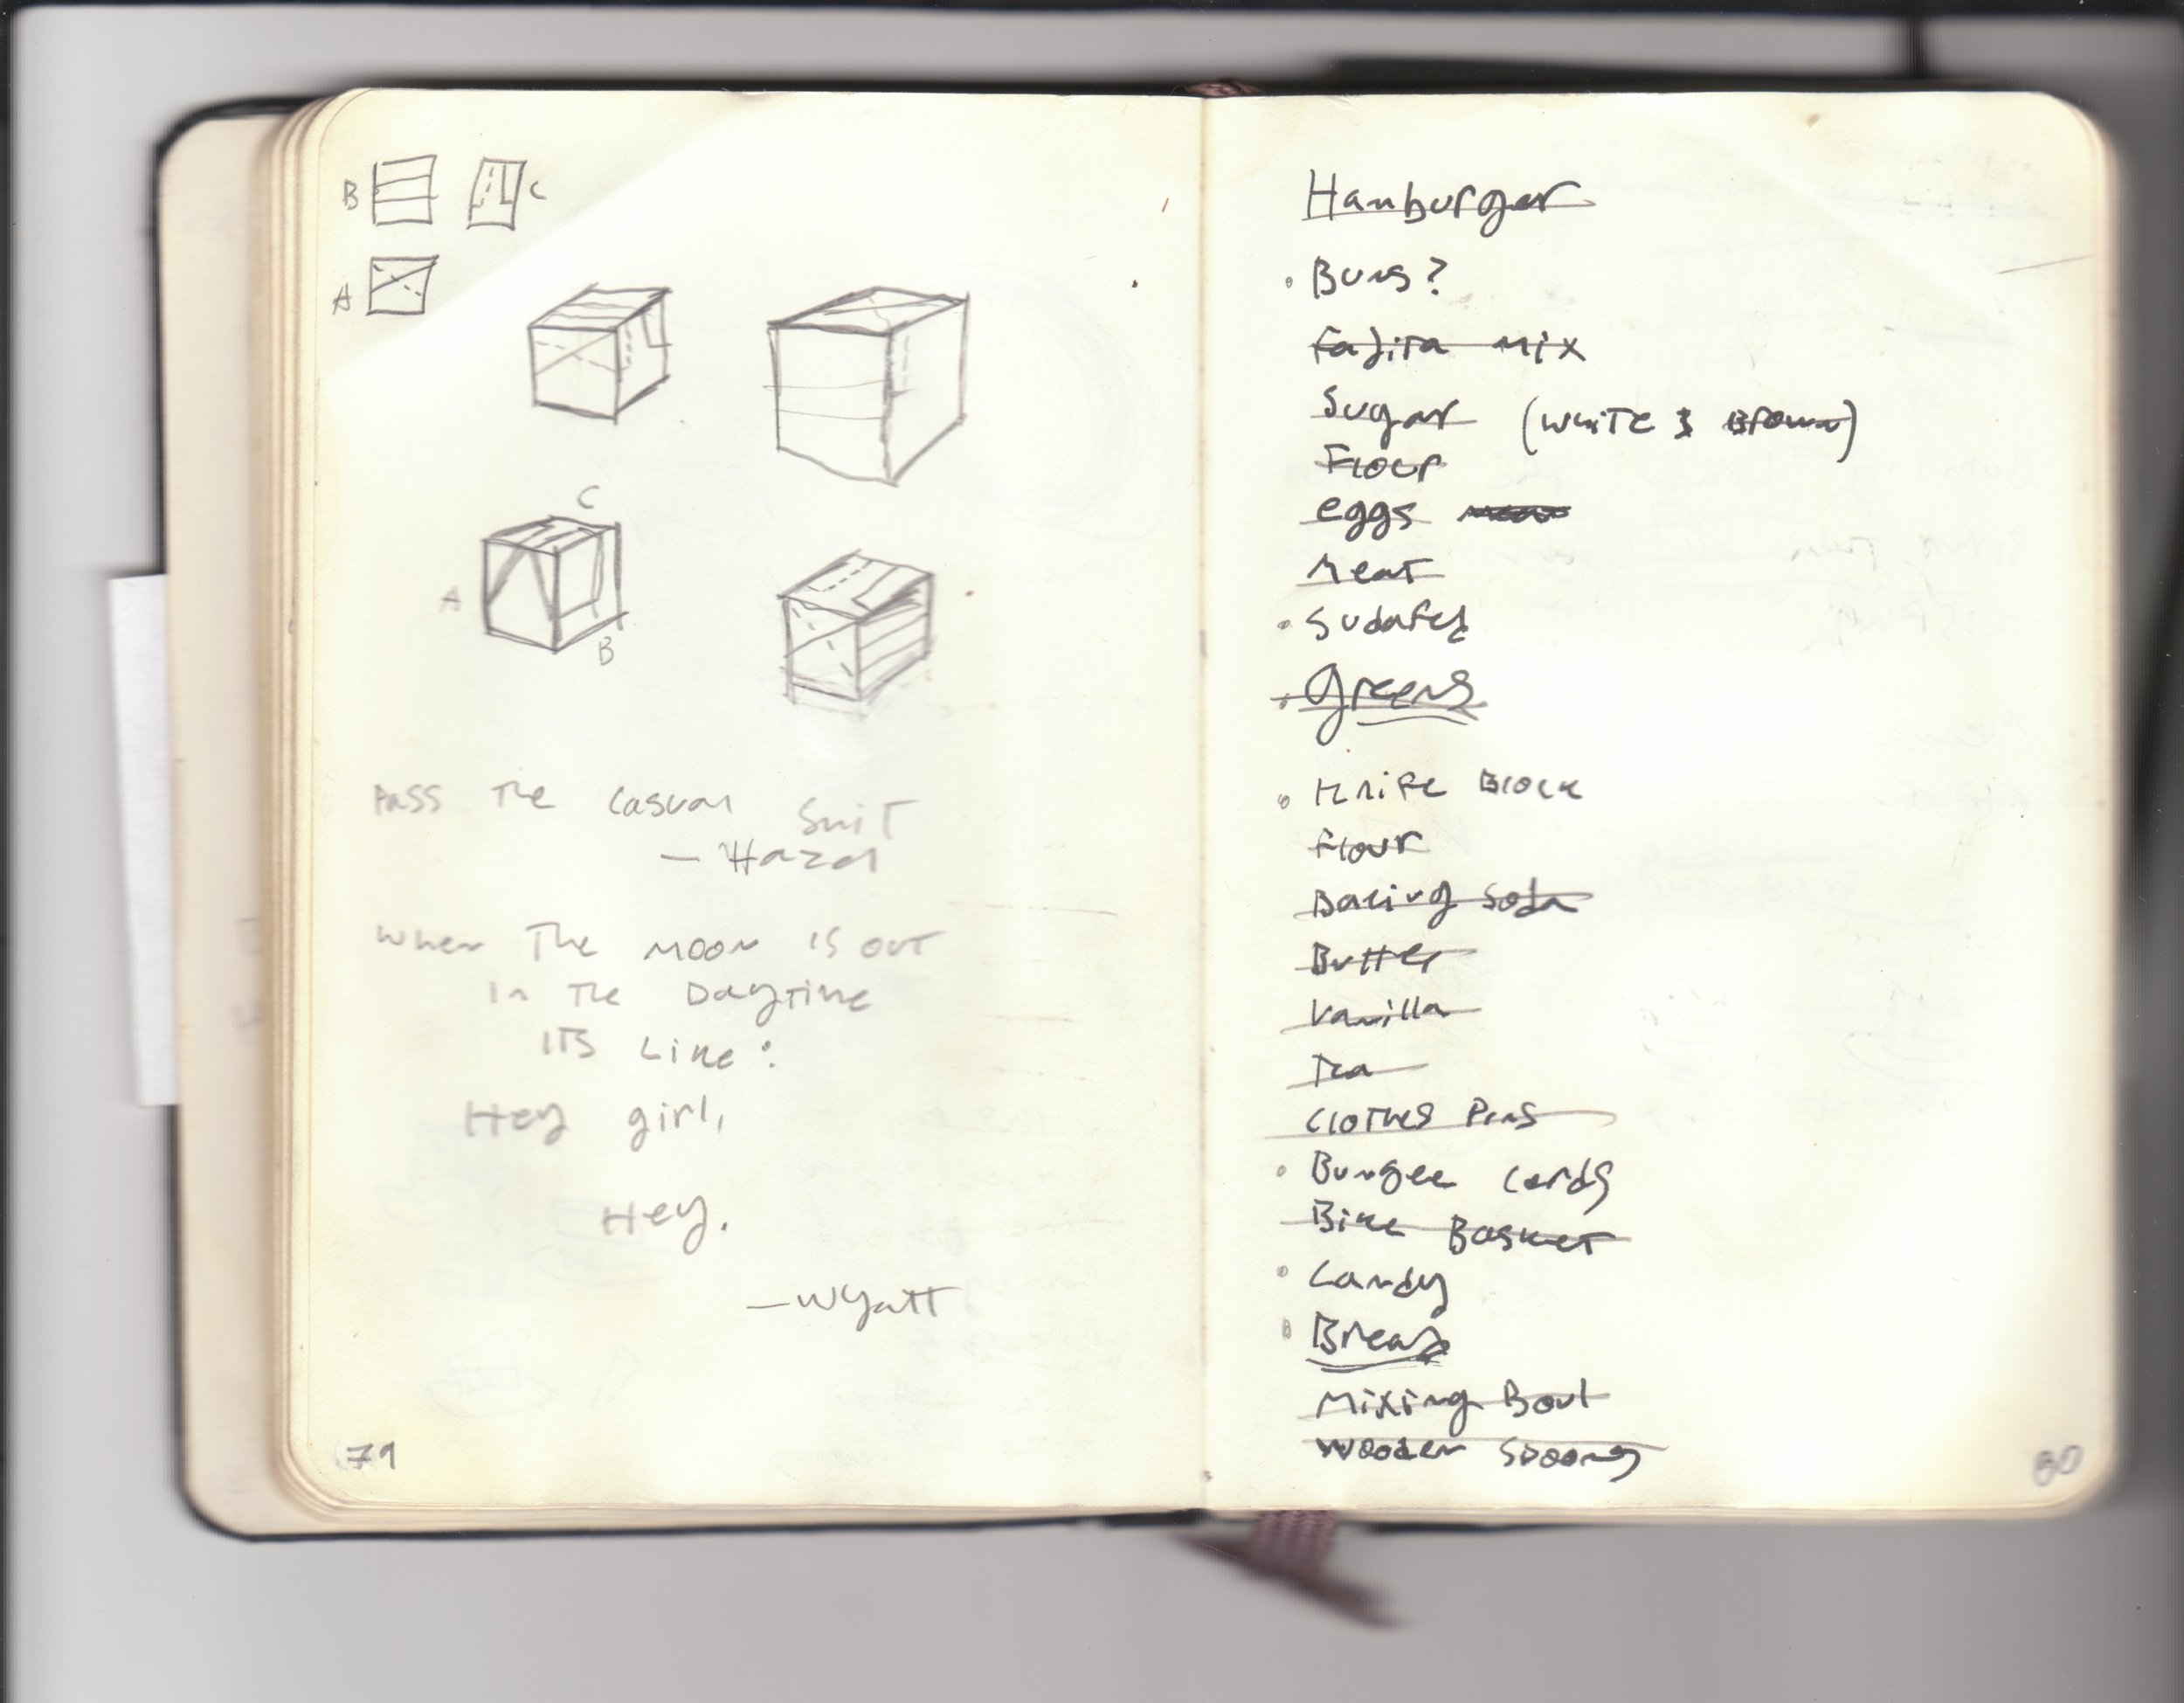 B C
A
C
A
B
Pass The Casual Shit
— Hazel
When The Moon is out
In The Daytime
ITS Like:
Hey girl,
Hey.
— Wyatt
79
Hamburger
• Buns?
Fajita Mix
Sugar (White & Brown)
Flour
eggs
Meat
• Sudafed
• Greens
• Knife Block
Flour
Baking Soda
Butter
Vanilla
Tea
Clothes Pins
• Bungee Cords
Bike Basket
• Candy
• Bread
Mixing Bowl
Wooden Spoons
80